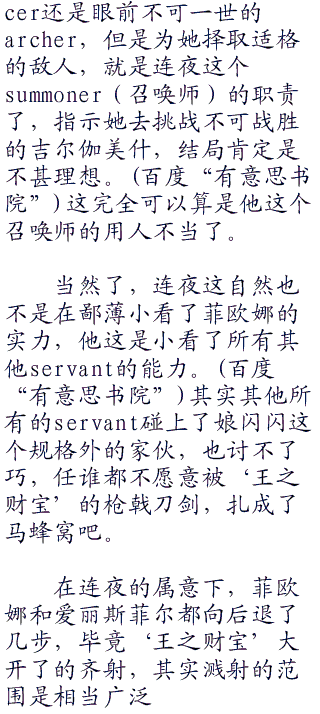 cer还是眼前不可一世的
archer，但是为她择取适格
的敌人，就是连夜这个
summoner（召唤师）的职责
了，指示她去挑战不可战胜
的吉尔伽美什，结局肯定是
不甚理想。(百度“有意思书
院”)这完全可以算是他这个
召唤师的用人不当了。
当然了，连夜这自然也
不是在鄙薄小看了菲欧娜的
实力，他这是小看了所有其
他servant的能力。(百度
“有意思书院”)其实其他所
有的servant碰上了娘闪闪这
个规格外的家伙，也讨不了
巧，任谁都不愿意被‘王之
财宝’的枪戟刀剑，扎成了
马蜂窝吧。
在连夜的属意下，菲欧
娜和爱丽斯菲尔都向后退了
几步，毕竟‘王之财宝’大
开了的齐射，其实溅射的范
围是相当广泛